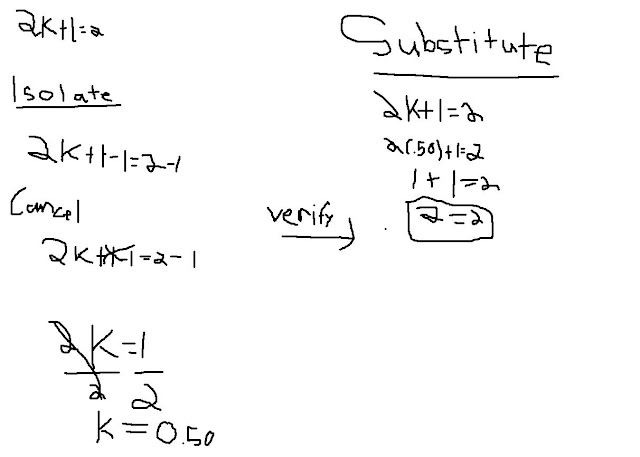 2k+1=2
Isolate
2k+1-1=2-1
Cancel
2k+1-1=2-1
2k=1
2 2
k=0.50
verify
Substitute
2k+1=2
2(.50)+1=2
1+1=2
2=2